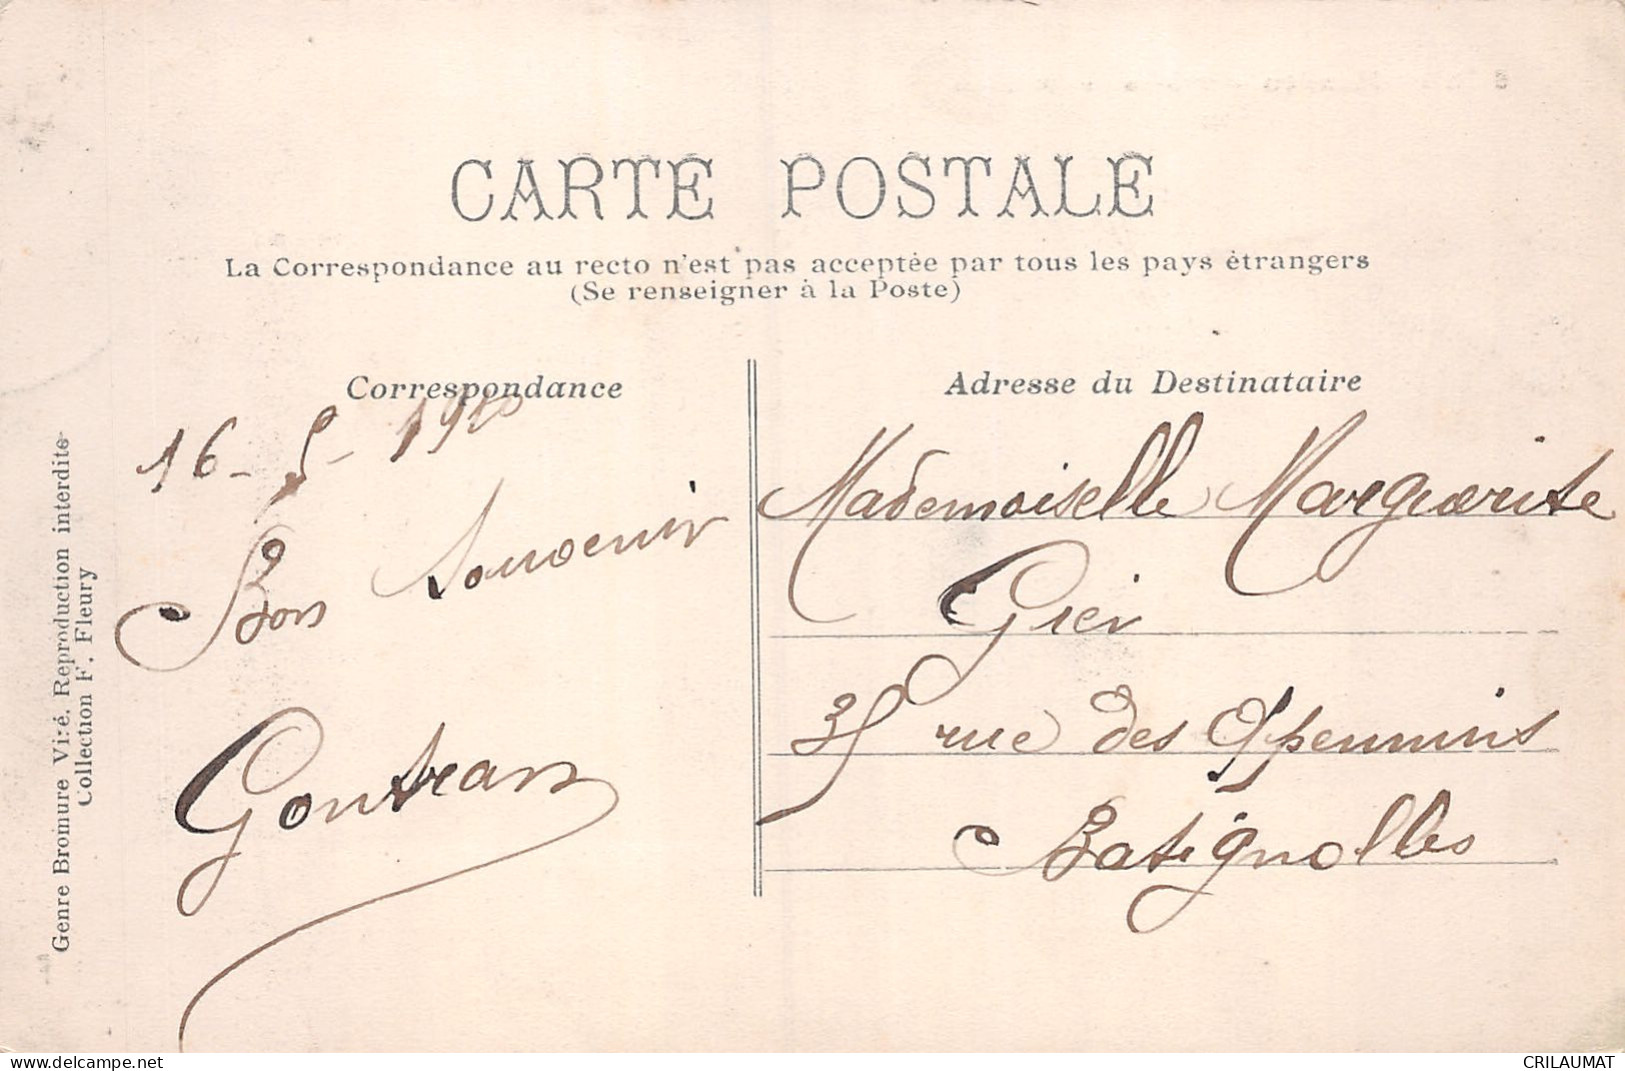 CARTE POSTALE
La Correspondance au recto n'est pas acceptée par tous les pays étrangers
(Se renseigner à la Poste)
Correspondance
16-5-1910
Bon Souvenir
Gontran
Adresse du Destinataire
Mademoiselle Marguerite
Grei
35 rue des Apennins
Batignolles
Genre Bromure Viré. Reproduction interdite
Collection F. Fleury
delcampe.net
CRILAUMAT